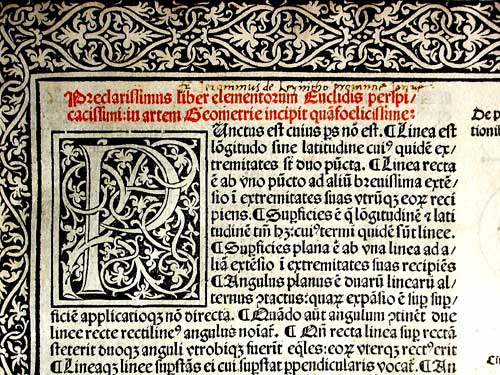 Preclarissimus liber elementorum Euclidis perspi⸗
cacissimi: in artem Geometrie incipit quãfoelicissime:
PUnctus est cuius ps nõ est. ¶ Linea est
lõgitudo sine latitudine cui⁹ quidẽ ex⸗
tremitates sũt duo pũcta. ¶ Linea recta
ẽ ab vno pũcto ad aliũ breuissima extẽ⸗
sio ĩ extremitates suas vtrũqꝫ eoꝝ reci
piens. ¶ Supficies ẽ q̃ lõgitudinẽ ⁊ lati
tudinẽ tm̃ hꝫ: cui⁹ termi quidẽ sũt linee.
¶ Supficies plana ẽ ab vna linea ad a⸗
liã extẽsio ĩ extremitates suas recipiẽs
¶ Angulus planus ẽ duarũ linearũ al⸗
ternus ꝯtactus: quaꝝ expãsio ẽ sup sup⸗
ficiẽ applicatioqꝫ nõ directa. ¶ Quãdo aũt angulum ꝯtinẽt due
linee recte rectiline⁹ angulus noĩat. ¶ Qñ recta linea sup rectã
steterit duoqꝫ anguli vtrobiqꝫ fuerit eq̃les: eoꝝ vterqꝫ rect⁹ erit
¶ Lineaqꝫ linee supstãs ei cui supstat ppendicularis vocat. ¶ An
De p
tionib